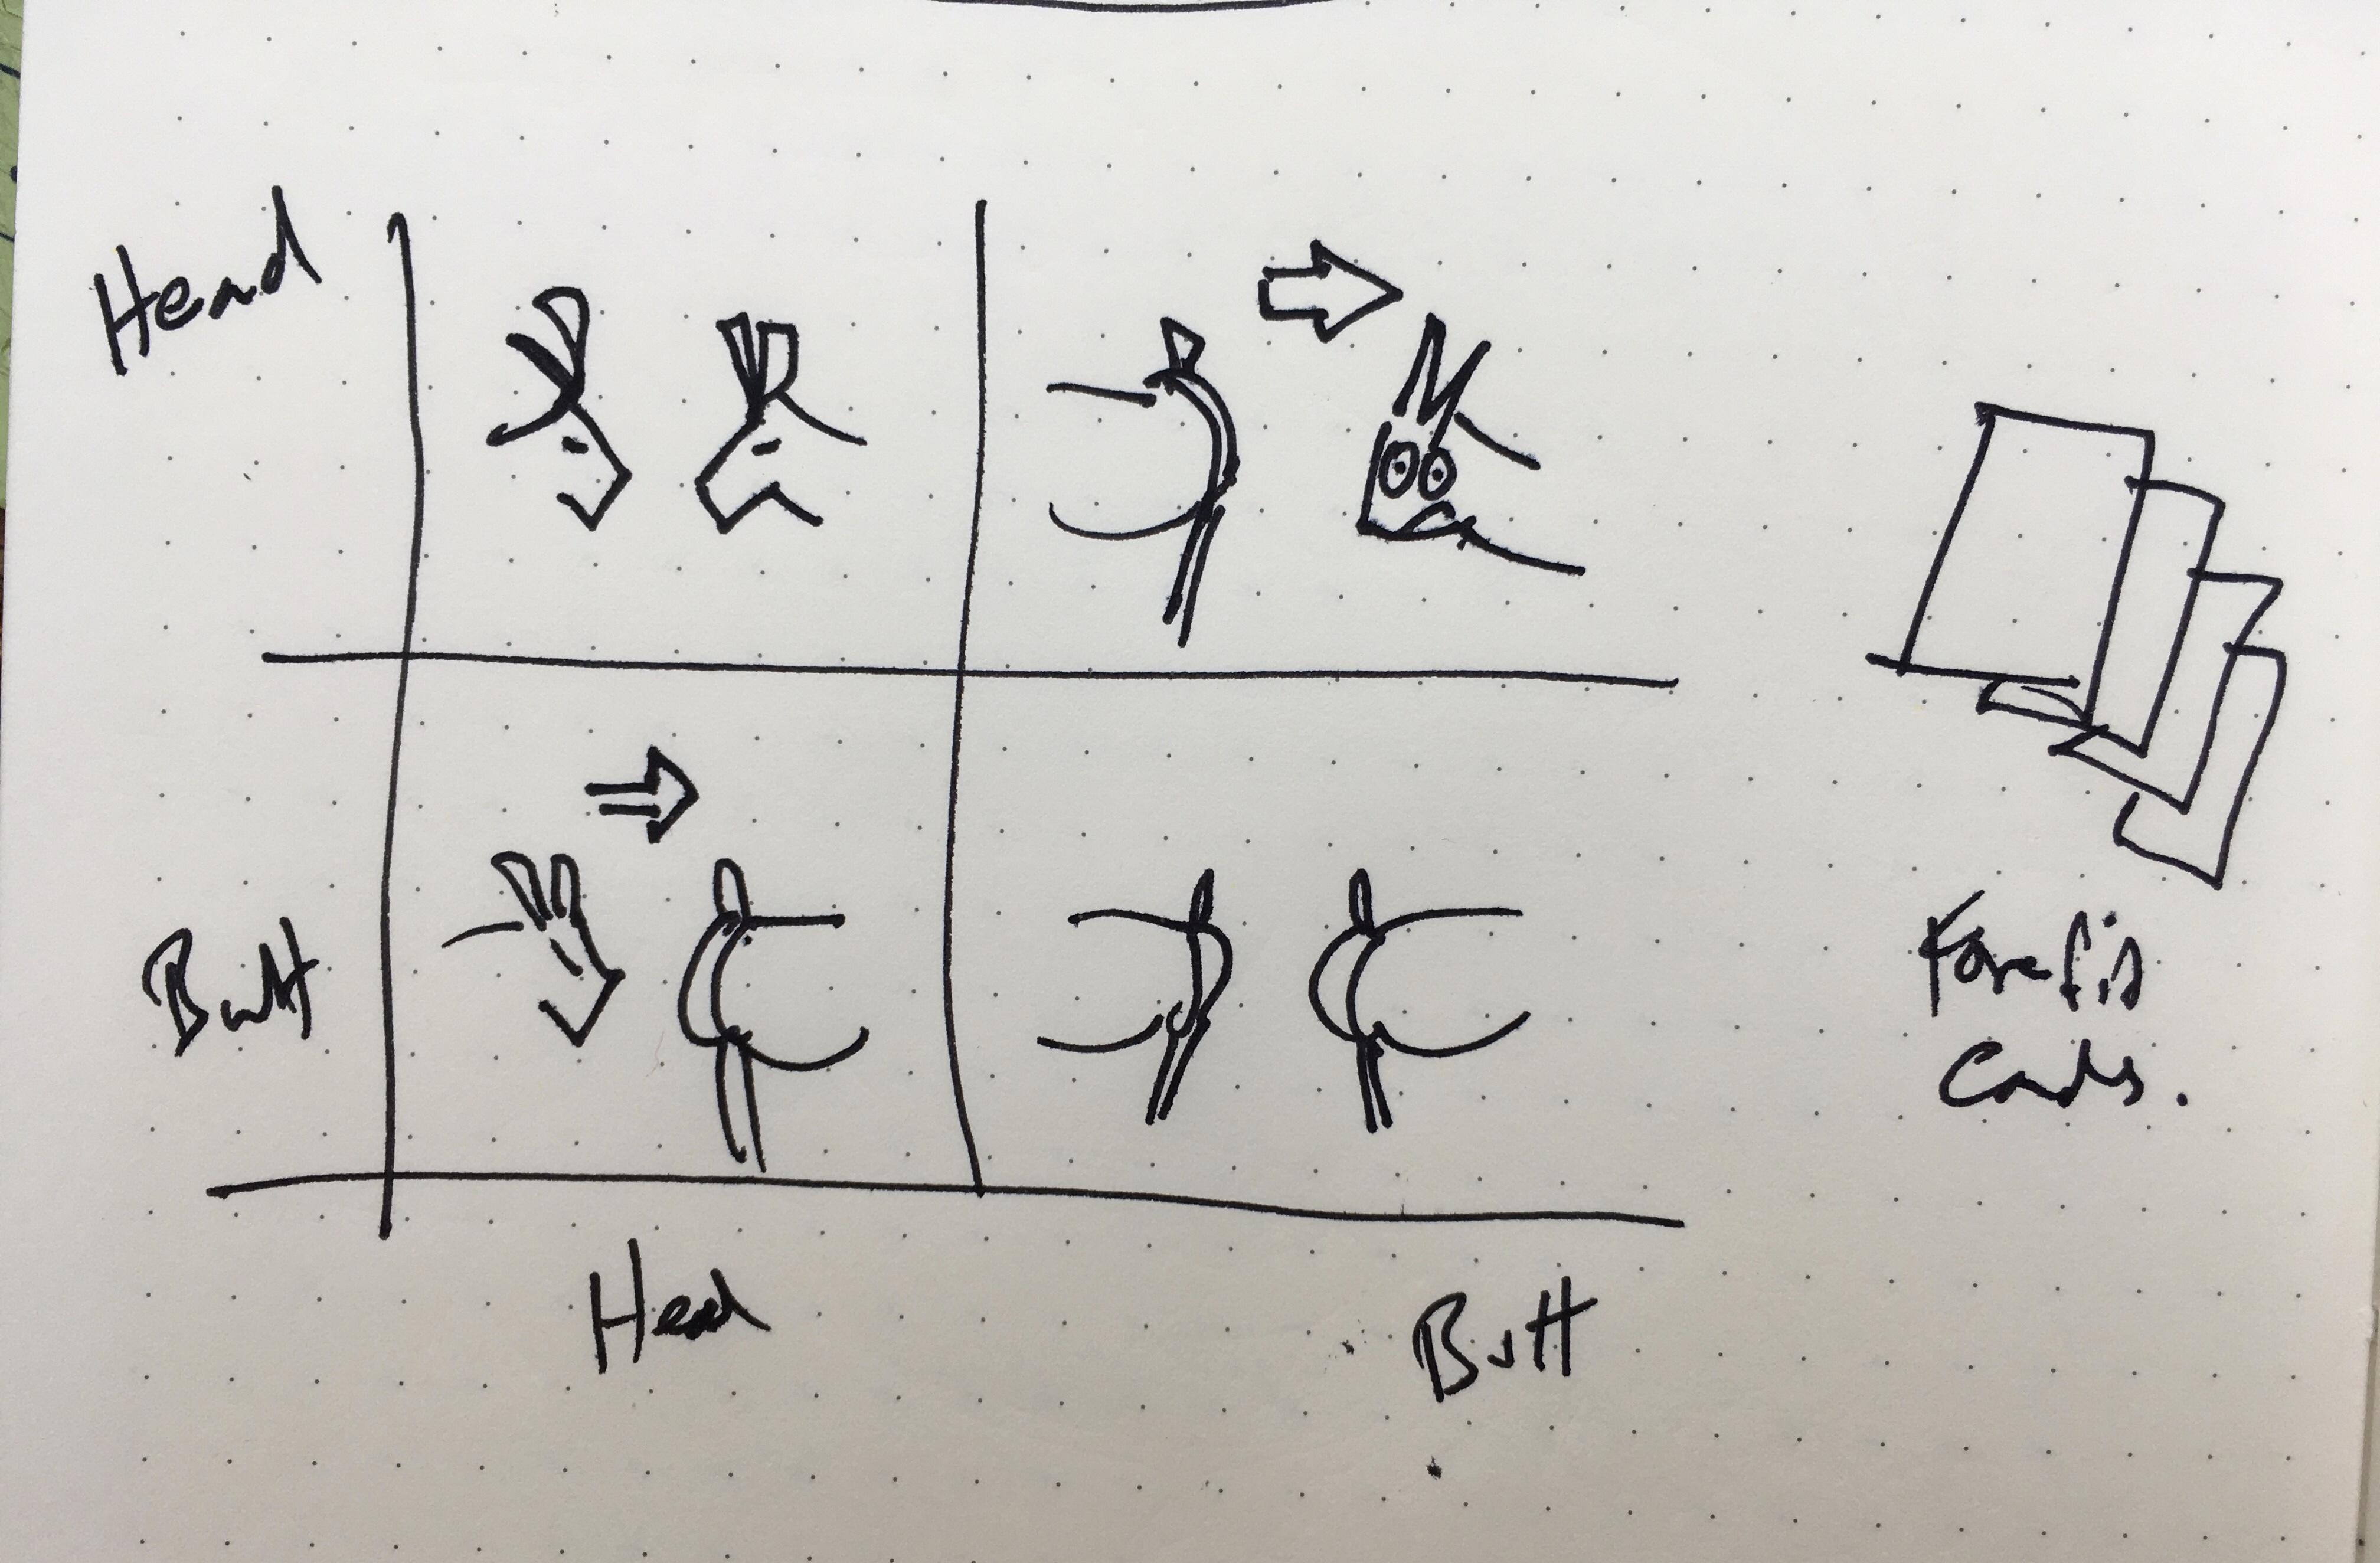 Head
Butt
Head
Butt
Cards.